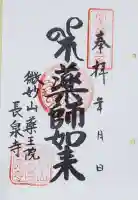 奉拝
年 月 日
薬師如来
微妙山 薬王院
長泉寺